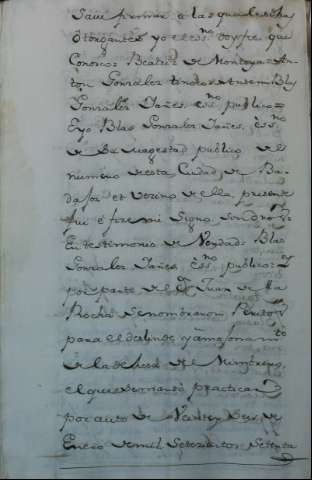 Savi firmar, a las quales dhas
Otorgantes yo el ess.no doy fee que
Conozco: Beatriz de Montoya: An-
ton Gonzalez tondos: Ante mi Blas
Gonzalez Yañes, ess.no publico =
Eyo Blas Gonzalez Yañes, ess.no
de Su Magestad, publico, del
numero de esta Ciudad, de Ba-
dajoz et vezino de ella, presente
fui é fize mi Signo,
En testimonio de Verdad: Blas
Gonzalez Yañes, ess.no publico: Y
por parte del Dn Juan de la
Rocha se nombraron Peritos
para el deslinde y amojonam.to
de la dehesa de el Mimbrero,
el que se mando practicar
por auto de Veinte y Seis de
Enero de mil Setezientos Setenta